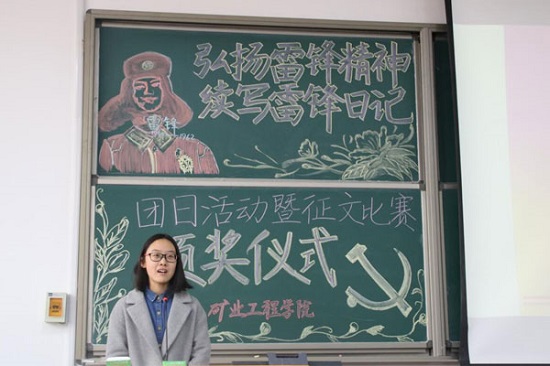 弘扬雷锋精神
续写雷锋日记
雷锋
团日活动暨征文比赛
颁奖仪式
矿业工程学院